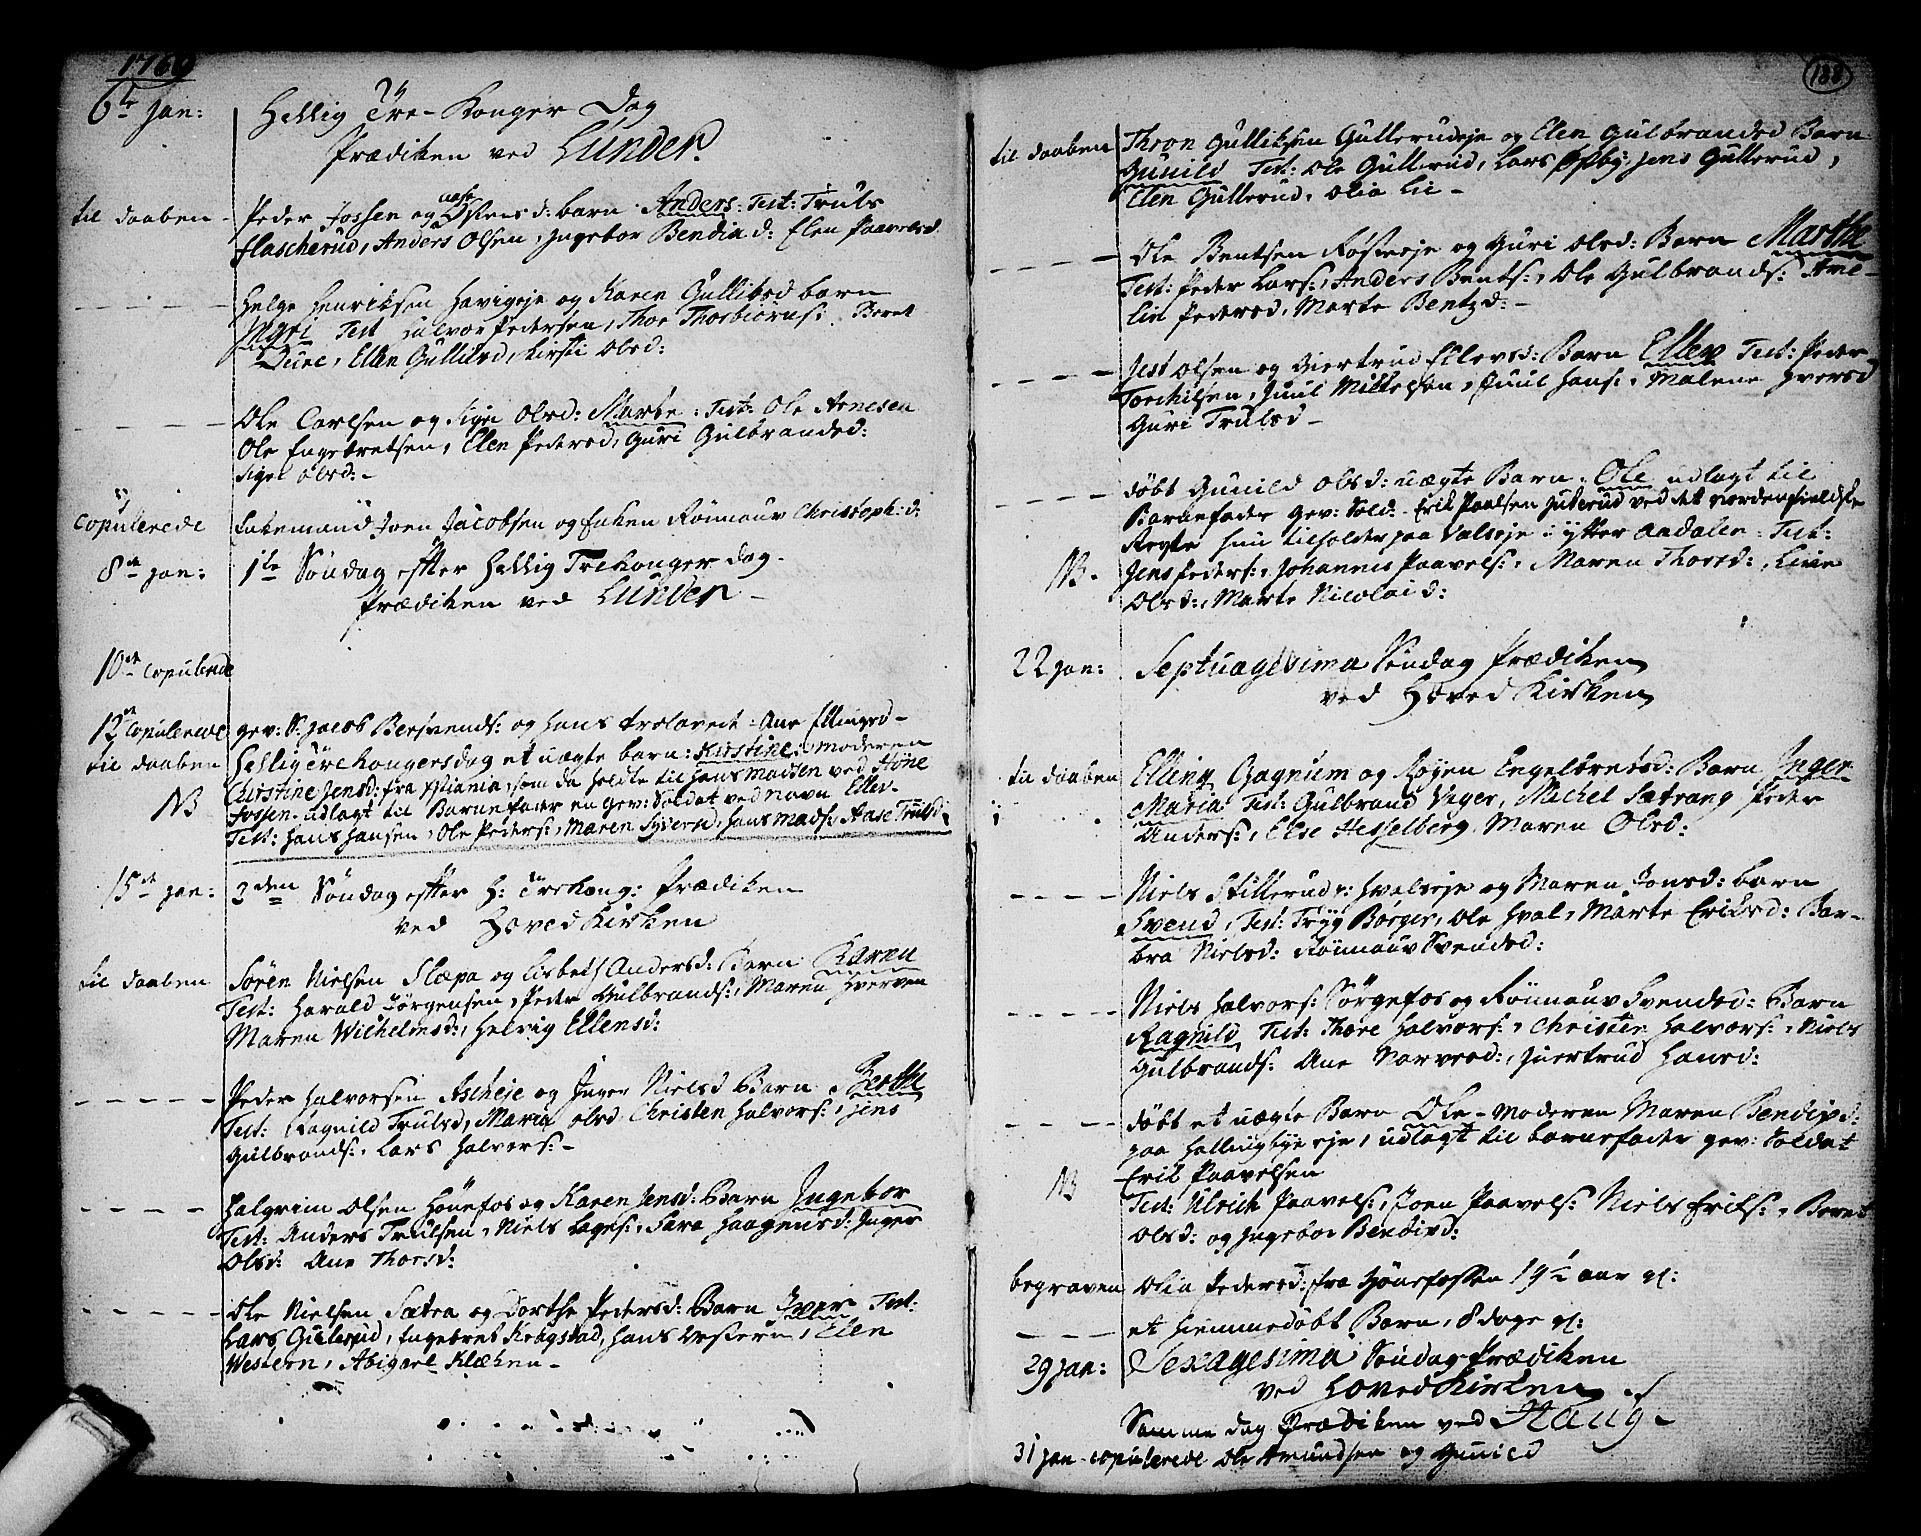 1769
6te Jan:
Hellig Tre-Konger Dag
Prædiken ved Lunder.
til daaben - Peder Jossen og Aase Ostensd: barn Anders: Test: Truls
Flascherud, Anders Olsen, Ingebor Bendixd: Elen Paavelsd
- - - - Helge Henriksen Havigeje og Karen Gulliksd barn
Test Halvor Pedersen, Thor Thorbiörns: Beret
Elen Gullilsd, Kirsti Olsd:
- - - - Ole Carlsen og Sigri Olsd: Marte: Test: Ole Arnesen
Ole Engebretsen, Elen Pedersd, Guri Gulbrandsd:
Sigri Olsd: -
Copulerede Enkemand Joen Jacobsen og Enken Rönnauv Christoph: d:
8de Jan: 1te Söndag efter Hellig Trekonger dag -
Prædiken ved Lunder -
10de Copulerede
12te Copulerede gev: S: Jacob Bersvends: og hans trolovede: Ane Ellingsd -
til daaben Hellig Tre Kongersdag et uægte barn: Kirstine: moderen
NB Christine Jensd: fra Xstiania, som da holdte til Hans Madsen ved Höne
Fossen. udlagt til Barnefader en gev: Soldat ved navn Eller
Test: Hans Hansen, Ole Peders:, Maren Syversd, Hans Mads: Aase Trulsd:
15de Jan: 2den Söndag efter H: Trekong: Prædiken
ved Hoved Kirken
til daaben Sören Nielsen Slæpa og Lisbeth Andersd: Barn Karen
Test: Harald Jörgensen, Peder Gulbrands:, Maren Hverven
Maren Wilhelmsd:, Helvig Ellensd:
- - - - - Peder Halvorsen Ascheje og Inger Nielsd Barn Berthe
Test: Ragnild Trulsd, Maria Olsd Christen Halvors:, Jens
Gulbrands:, Lars Halvors: -
- - - - Halgrim Olsen Hönefos og Karen Jensd: Barn Ingebor
Test: Anders Trulsen, Niels Lages:, Sara Haagensd: Inger
Olsd: Ane Thorsd:
- - - - - Ole Nielsen Sætra og Dorthe Pedersd: Barn Iver Test:
Lars Gullerud, Engebret Kragstad, Hans Western, Elen
Western, Abigael Klækken -
188
til daaben Thron Gulliksen Gullerudeje og Elen Gulbrandsd Barn
Gunild Test: Ole Gullerud, Lars Opby, Jens Gullerud,
Elen Gullerud, Olia Lie -
- - - - Ole Bentsen Röseeje og Guri Olsd: Barn Marthe
Test: Peder Lars:, Anders Bents:, Ole Gulbrands: Ane -
lin Pedersd, Marte Bentzd: -
- - - - Jest Olsen og Giertrud Ellevsd: Barn Ellen Test: Peder
Torchilsen, Juul Mikkelsen, Juul Hans:, Malene Iversd
Guri Trulsd -
- - - döbt Gunild Olsd: uægte Barn, Ole udlagt til
Barnefader gev: Sold: Erik Paalsen Gukerud ved det Nordenfieldske
Regte hun tilholder paa Valseje i ytter Aadalen: Test:
NB. Jens Peders:, Johannes Paavels:, Maren Thorsd:, Live
Olsd:, Marte Nicolai d:
22 Jan: Septuagesima Söndag Prædiken
ved Hoved Kirken
til daaben Elling Gagnum og Engelbretsd: Barn Inger
Maria Test: Gulbrand Veger, Michel Sætrang Peder
Anders:, Else Hesselberg Maren Olsd:
- - - - Niels Stillerud: Hvalseje og Maren Jonsd: barn
Svend, Test: Tryg Börger, Ole Hval, Marte Eriksd: Bar-
bra Nielsd: Rönnauv Svendsd:
- - - - Niels Halvors: Sörgefos og Rönnauv Svendsd: Barn
Ragnild Test: Thore Halvors:, Christen Halvors:, Niels
Gulbrands: Ane Narvesd:, Giertrud Hansd:
- - - - döbt et uægte Barn Ole - moderen Maren Bendixd:
paa Hallingbye eje, udlagt til barnefader gev: Soldat
NB Erik Paavelsen
Test: Ulrich Paavels:, Joen Paavels: Niels Eriks:, Beret
Olsd: og Ingebor Bendixd:
begraven Olia Pedersd: fra Hönefossen 19½ aar gl:
- - - et hiemmedöbt Barn, 8 dage gl:
29 Jan: Sexagesima Söndag Prædiken
ved Hoved Kirken
Samme dag Prædiken ved Haug -
31 Jan - Copulerede Ole Amundsen og Gunild